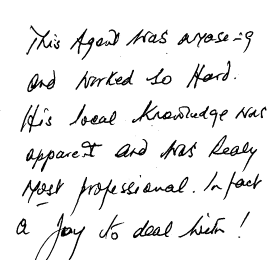 This Agent was amazing
and worked so Hard.
His local knowledge was
apparent and was Realy
Most professional. In fact
a Joy to deal with!